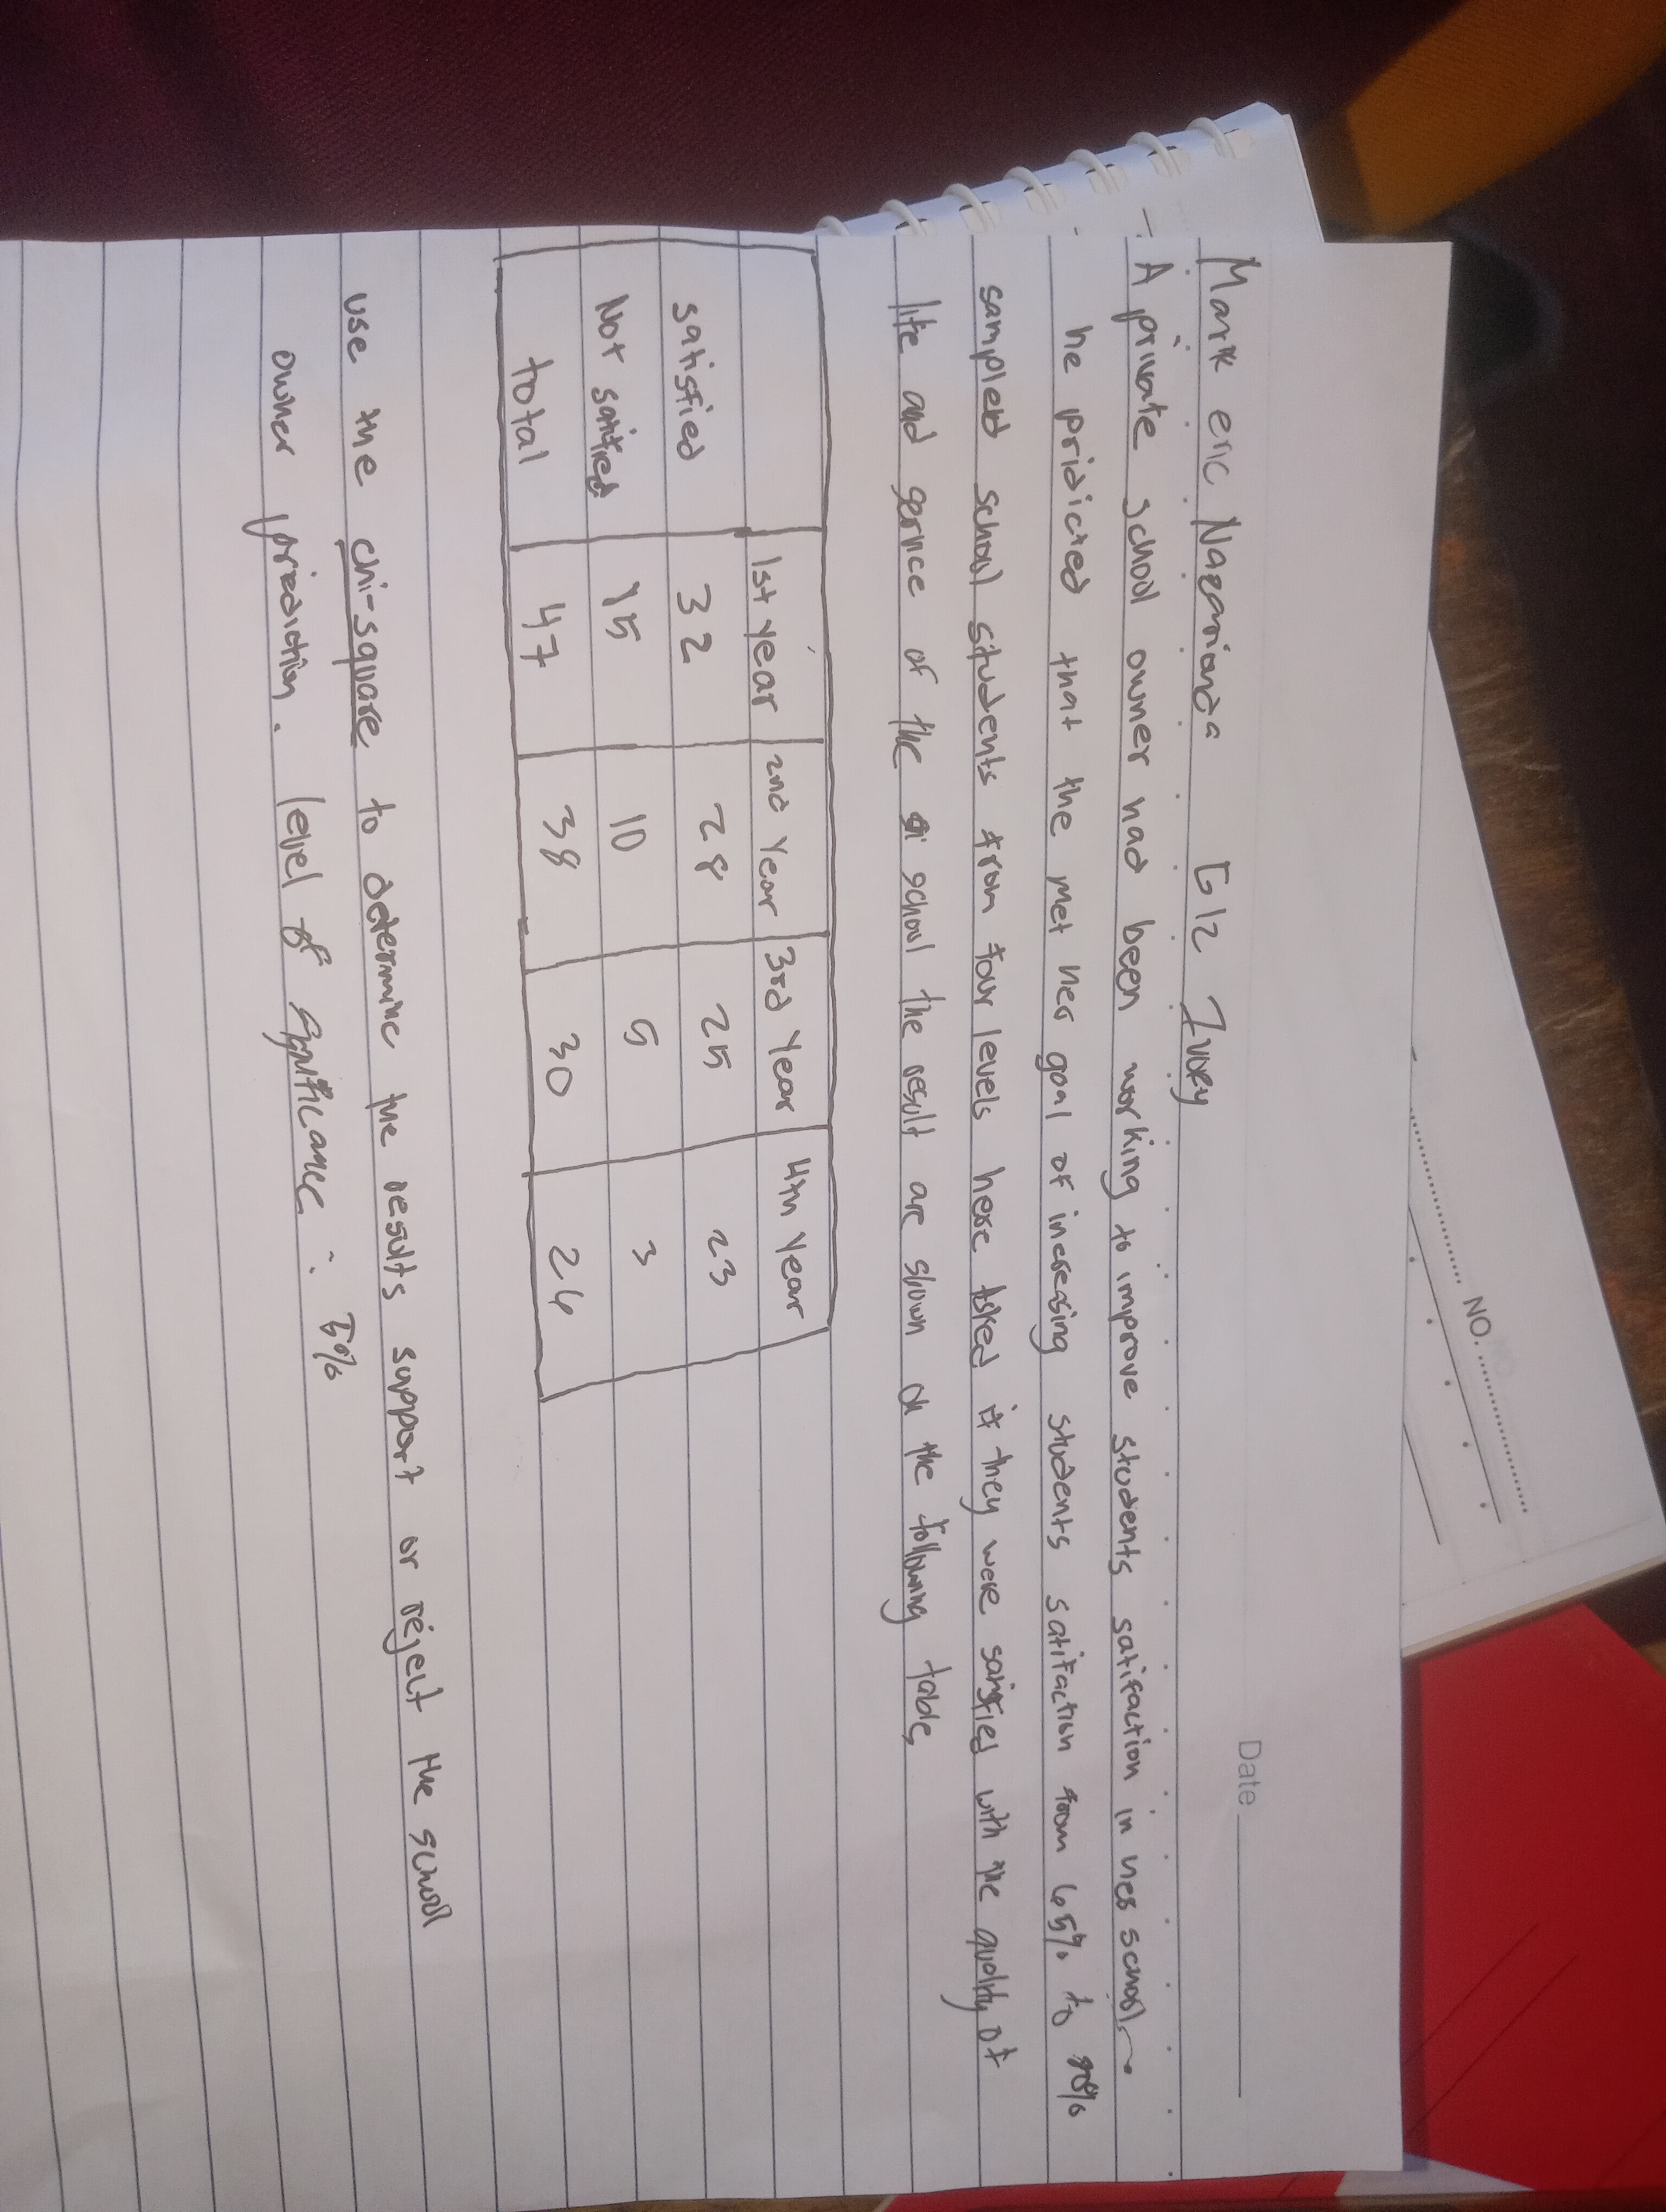 Date
NO.
Mark eric Nazarrionda G12 Ivory
- A private school owner had been working to improve students satifaction in her school.
he pridicted that the met her goal of increasing students satifaction from 65% to 90%
sampled school situdents from four levels here asked if they were satisfied with the quality of
life and service of the school the result are shown on the following table,
1st year 2nd Year 3rd Year 4th Year
satisfied 32 28 25 23
Not satified 15 10 5 3
total 47 38 30 26
use the chi-square to determine the results support or reject the school
owner pridiction. level of significance : 5%